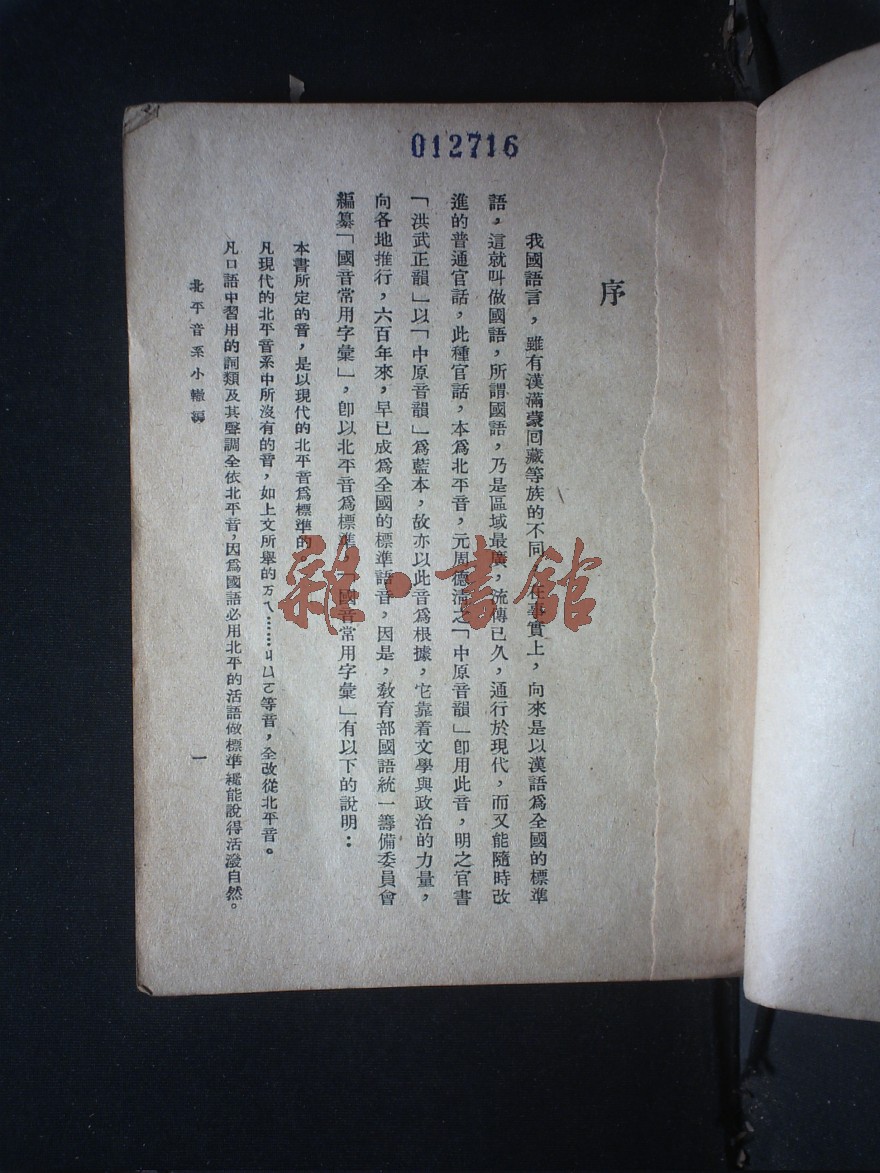 012716
序
我國語言，雖有漢滿蒙回藏等族的不同，在事實上，向來是以漢語爲全國的標準
語，這就叫做國語，所謂國語，乃是區域最廣，流傳已久，通行於現代，而又能隨時改
進的普通官話，此種官話，本爲北平音，元周德清之「中原音韻」卽用此音，明之官書
「洪武正韻」以「中原音韻」爲藍本，故亦以此音爲根據，它靠着文學與政治的力量，
向各地推行，六百年來，早已成爲全國的標準語音，因是，敎育部國語統一籌備委員會
編纂「國音常用字彙」，卽以北平音爲標準，「國音常用字彙」有以下的說明：
本書所定的音，是以現代的北平音爲標準的。
凡現代的北平音系中所沒有的音，如上文所舉的ㄞㄟ……ㄐㄩㄛ等音，全改從北平音。
凡口語中習用的詞類及其聲調全依北平音，因爲國語必用北平的活語做標準纔能說得活潑自然。
北平音系小轍編
一
雜·書館